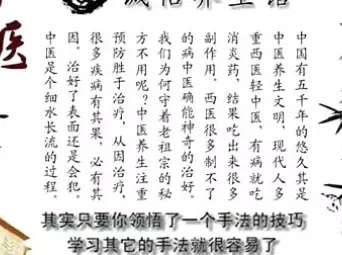 医
中国有五千年的悠久其是
中医养生文明，现代人多
重西医轻中医，有病就吃
消炎药，结果吃出来很多
副作用，西医很多制不了
的病中医确能神奇的治好。
我们为何守着老祖宗的秘
方不用呢？中医养生注重
预防胜于治疗，从因治疗，
很多疾病有其果，必有其
因。治好了表面还是会犯。
中医是个细水长流的过程。
其实只要你领悟了一个手法的技巧
学习其它的手法就很容易了